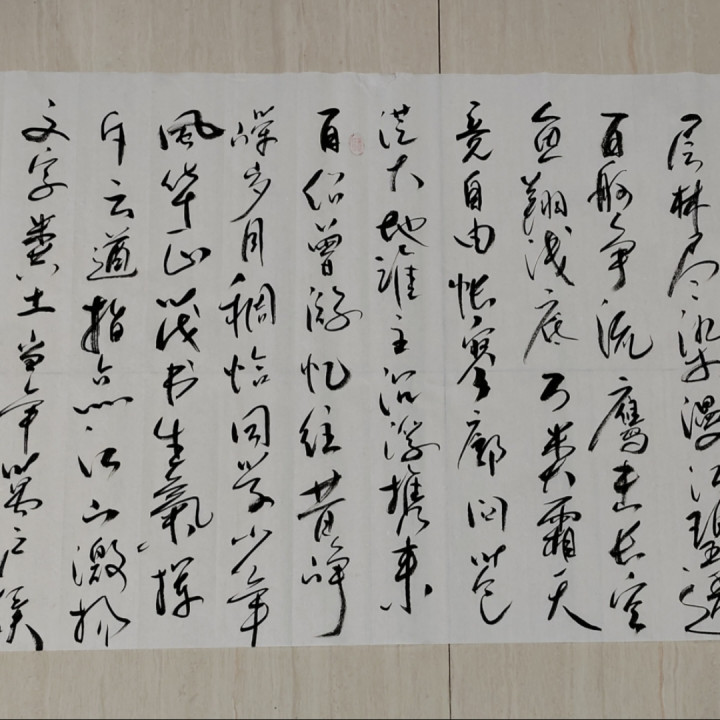 层林尽染漫江碧透
百舸争流鹰击长空
鱼翔浅底万类霜天
竞自由怅寥廓问苍
茫大地谁主沉浮携来
百侣曾游忆往昔峥
嵘岁月稠恰同学少年
風华正茂书生氣挥
斥方遒指点江山激扬
文字粪土当年萬户侯